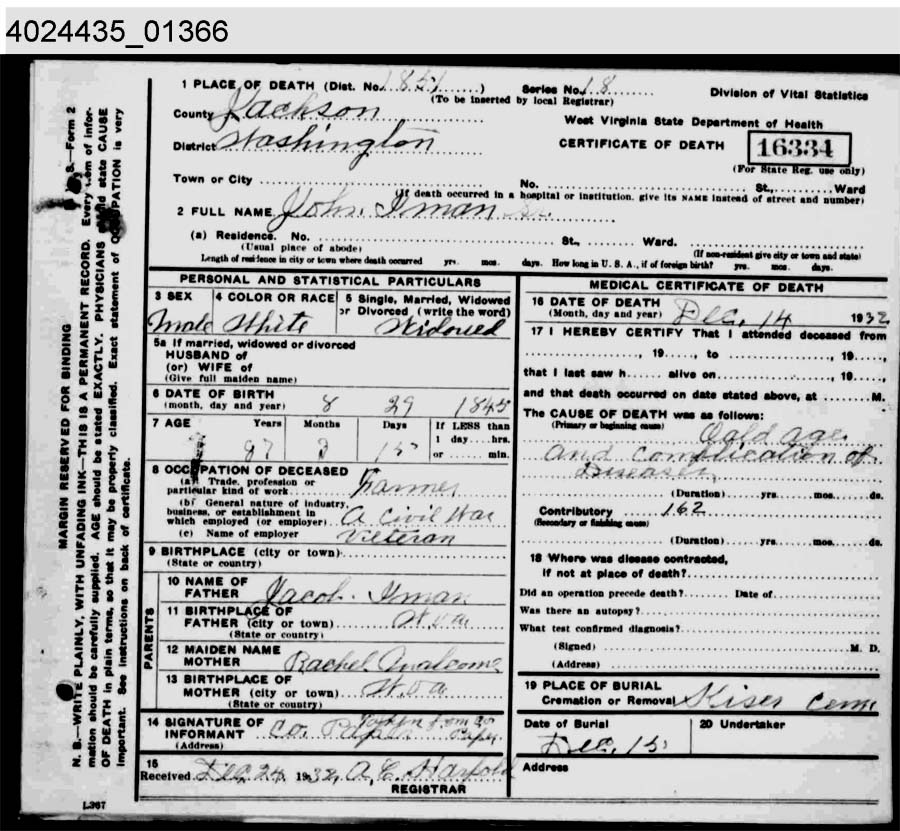 4024435_01366
1 PLACE OF DEATH (Dist. No. 1851) Series No. 18 Division of Vital Statistics
(To be inserted by local Registrar)
County Jackson West Virginia State Department of Health
District Washington CERTIFICATE OF DEATH 16334
(For State Reg. use only)
Town or City No. St., Ward
(If death occurred in a hospital or institution, give its NAME instead of street and number)
2 FULL NAME John Sr.
(a) Residence. No. St., Ward.
(Usual place of abode) (If non-resident give city or town and state)
Length of residence in city or town where death occurred yrs. mos. days. How long in U. S. A., if of foreign birth? yrs. mos. days.
PERSONAL AND STATISTICAL PARTICULARS
3 SEX 4 COLOR OR RACE 5 Single, Married, Widowed
or Divorced (write the word)
Male White Widowed
5a If married, widowed or divorced
HUSBAND of
(or) WIFE of
(Give full maiden name)
6 DATE OF BIRTH
(month, day and year) 8 29 1845
7 AGE Years Months Days If LESS than
1 day hrs.
87 3 15 or min.
8 OCCUPATION OF DECEASED
(a) Trade, profession or
particular kind of work Farmer
(b) General nature of industry,
business, or establishment in
which employed (or employer) A Civil War
(c) Name of employer Vieteran
9 BIRTHPLACE (city or town)
(State or country)
PARENTS
10 NAME OF
FATHER Jacob
11 BIRTHPLACE OF
FATHER (city or town) W. Va
(State or country)
12 MAIDEN NAME
MOTHER Rachel
13 BIRTHPLACE OF
MOTHER (city or town) W. Va
(State or country)
14 SIGNATURE OF
INFORMANT Co. Paper Taken from Co Paper
(Address)
15
Received Dec 24, 1932, A. C. Harpold
REGISTRAR
L367
MEDICAL CERTIFICATE OF DEATH
16 DATE OF DEATH
(Month, day and year) Dec, 14 1932
17 I HEREBY CERTIFY That I attended deceased from
, 19 , to , 19 ,
that I last saw h alive on , 19 ,
and that death occurred on date stated above, at M.
The CAUSE OF DEATH was as follows:
(Primary or beginning cause) Oald age
and complication of
Diseases
(Duration) yrs. mos. ds.
Contributory 162
(Secondary or finishing cause)
(Duration) yrs. mos. ds.
18 Where was disease contracted,
if not at place of death?
Did an operation precede death? Date of
Was there an autopsy?
What test confirmed diagnosis?
(Signed) M. D.
(Address)
19 PLACE OF BURIAL
Cremation or Removal Kiser Cem.
Date of Burial 20 Undertaker
Dec, 15
Address
MARGIN RESERVED FOR BINDING S.—Form 2
N. B.—WRITE PLAINLY, WITH UNFADING INK—THIS IS A PERMANENT RECORD. Every item of infor-
mation should be carefully supplied. AGE should be stated EXACTLY. PHYSICIANS should state CAUSE
OF DEATH in plain terms, so that it may be properly classified. Exact statement of OCCUPATION is very
important. See instructions on back of certificate.